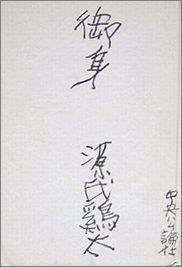 御身
源氏鶏太
中央公論社